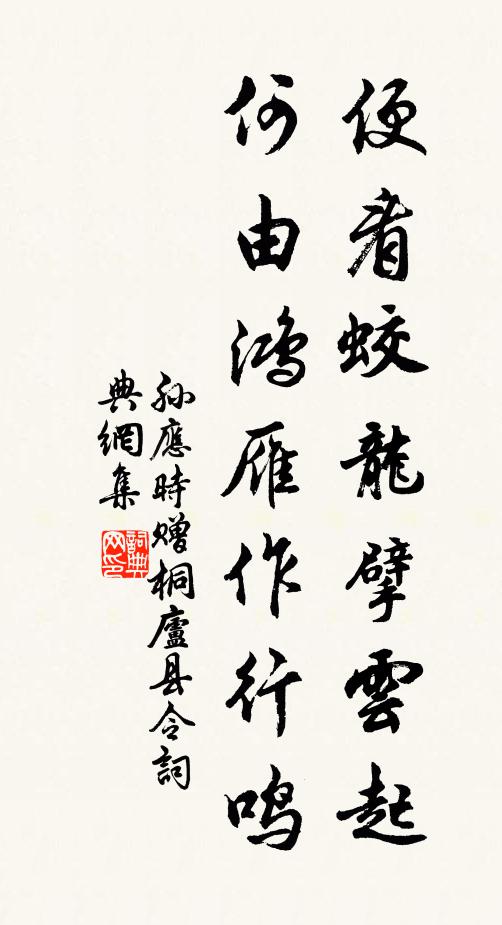 便看蛟龍擘雲起
何由鴻雁作行鳴
孙應時赠桐廬县令詞
典網集
詞典
网印